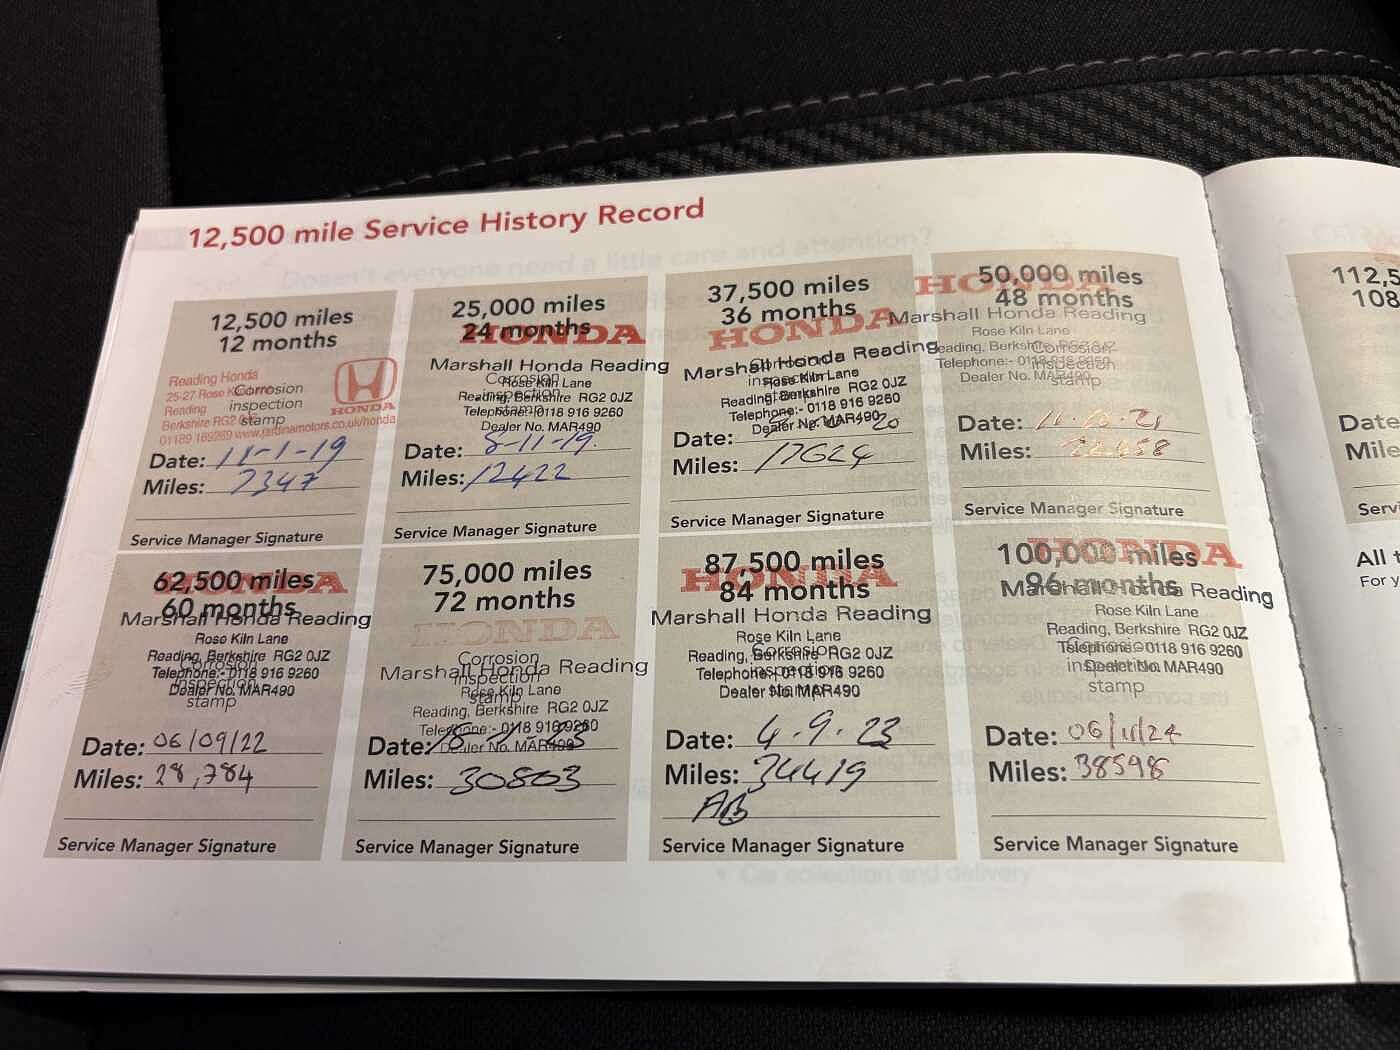 12,500 mile Service History Record
12,500 miles
12 months
Reading Honda
25-27 Rose
Corrosion
Reading
inspection
Berkshire RG2
stamp
HONDA
01189 169269 www.jardinemotors.co.uk/honda
Date: 11-1-19
Miles: 7347
Service Manager Signature
25,000 miles
24 months
HONDA
Marshall Honda Reading
Corrosion
Rose Kiln Lane
inspection
Reading, Berkshire RG2 0JZ
stamp
Telephone:- 0118 916 9260
Dealer No. MAR490
Date: 8-11-19.
Miles: 12422
Service Manager Signature
37,500 miles
36 months
HONDA
Marshall Honda Reading
Corrosion
Rose Kiln Lane
inspection
Reading, Berkshire RG2 0JZ
stamp
Telephone:- 0118 916 9260
Dealer No. MAR490
Date: 20
Miles: 17624
Service Manager Signature
50,000 miles
48 months
HONDA
Marshall Honda Reading
Rose Kiln Lane
Reading, Berkshire RG2 0JZ
Corrosion
Telephone:- 0118 916 9260
inspection
Dealer No. MAR490
stamp
Date: 21
Miles:
Service Manager Signature
62,500 miles
60 months
HONDA
Marshall Honda Reading
Rose Kiln Lane
Reading, Berkshire RG2 0JZ
Corrosion
Telephone:- 0118 916 9260
inspection
Dealer No. MAR490
stamp
Date: 06/09/22
Miles: 28,784
Service Manager Signature
75,000 miles
72 months
HONDA
Corrosion
Marshall Honda Reading
inspection
Rose Kiln Lane
stamp
Reading, Berkshire RG2 0JZ
Telephone:- 0118 916 9260
Dealer No. MAR490
Date: 23
Miles: 30803
Service Manager Signature
87,500 miles
84 months
HONDA
Marshall Honda Reading
Rose Kiln Lane
Corrosion
Reading, Berkshire RG2 0JZ
inspection
Telephone:- 0118 916 9260
stamp
Dealer No. MAR490
Date: 4.9.23
Miles: 34419
AB
Service Manager Signature
100,000 miles
96 months
HONDA
Marshall Honda Reading
Rose Kiln Lane
Reading, Berkshire RG2 0JZ
Corrosion
Telephone:- 0118 916 9260
inspection
Dealer No. MAR490
stamp
Date: 06/11/24
Miles: 38598
Service Manager Signature
112,5
108
Date
Mile
Serv
All t
For y
Car collection and delivery